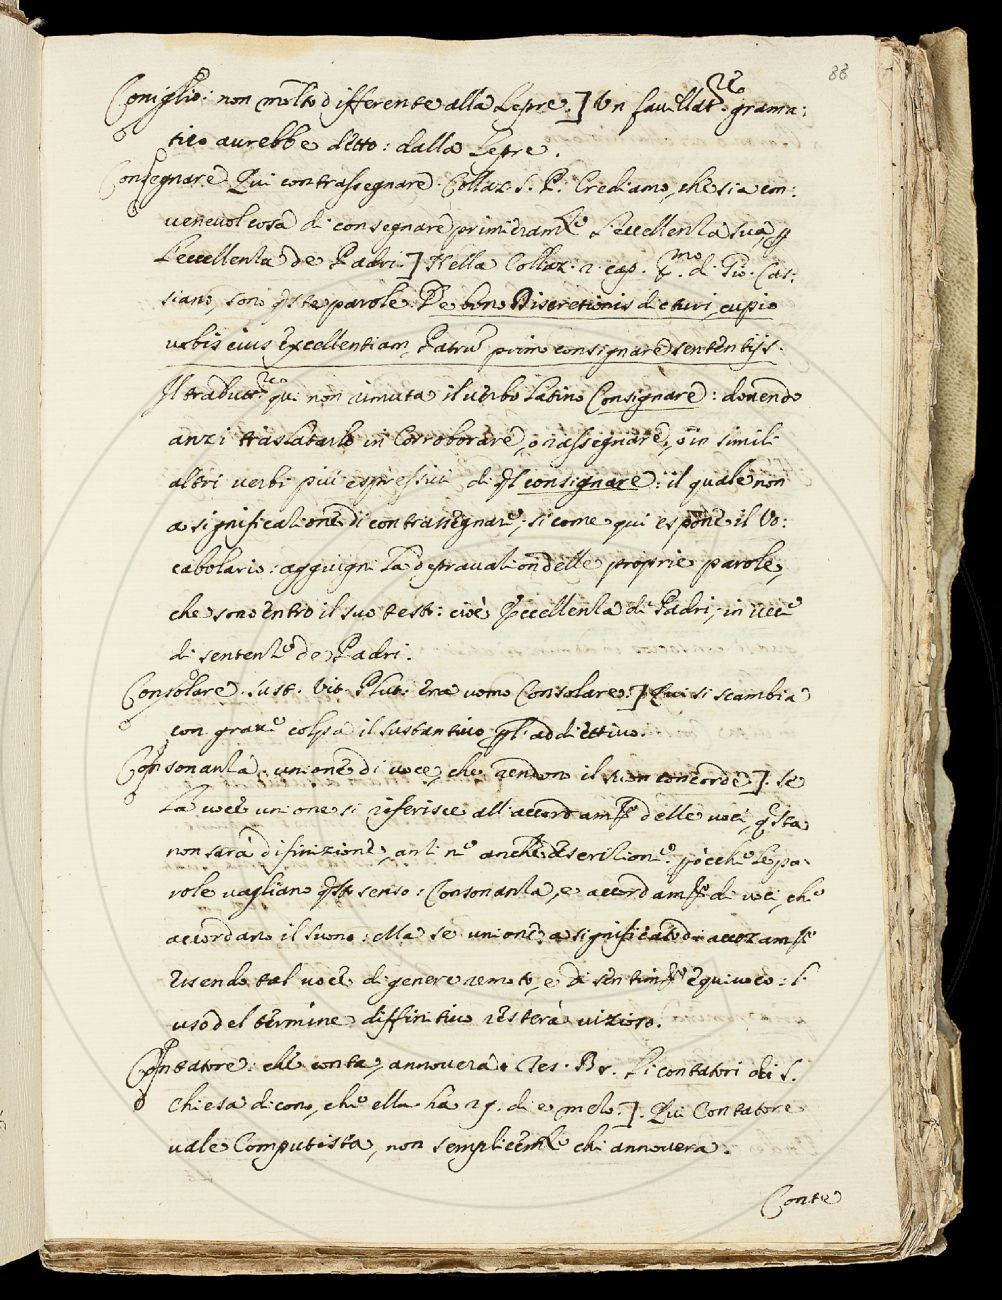 88
Coniglio: non molto differente alla Lepre.] Un favellat.re grama:
tico aurebbe detto: dalla Lepre.
Consegnare. Qui contrassegnare. Collaz. S. P. Crediamo, che sia con:
veneuol cosa di consegnare primieram.te l'eccellenza sua,
l'eccellenza de Padri.] Nella Collaz. 2. cap. p.mo d. Gio. Cas:
siano, sono q.ste parole. De bono Discretionis dicturi, cupio
vobis eius excellentiam, Patrū primo consignare sententijs.
Il tradutt.re qui non rimuta il uerbo Latino Consignare: douendo
anzi traslatarlo in Corroborare, o rassegnare, o in simili
altri uerbi più espressiui di q.l consignare: il quale non
a significatione di contrassegnare, sicome qui espone il Vo:
cabolario: aggiugni la deprauation delle proprie parole,
che sono entro il suo testo: cioè l'eccellenza de Padri, in uece
di sentenze de Padri.
Consolare. sust. Vit. Plut. era uomo Consolare.] Qui si scambia
con graue colpa il sustantiuo p l'addiettiuo.
Consonanza, unione di uoce, che rendono il suon concorde]. Se
la uoce unione si riferisce all'accordam.to delle uoci, q.sta
non sarà difinizione, anzi ne anche descrizione: poccche le pa:
role uagliano q.sto senso: Consonanza, e accordam.to di uoci, che
accordano il suono: Ma se unione a significato di accozam.to
essendo tal uoce di genere remoto, e di sentim.to equiuoco: l'
uso del termine diffinitiuo resterà uizioso.
Contatore: che conta, annouera. Tes. Br. Li contatori di S.
Chiesa dicono, che ella ha 29. di e mezo.]. Qui Contatore
uale Computista, non semplicem.te chi annouera.
Conte